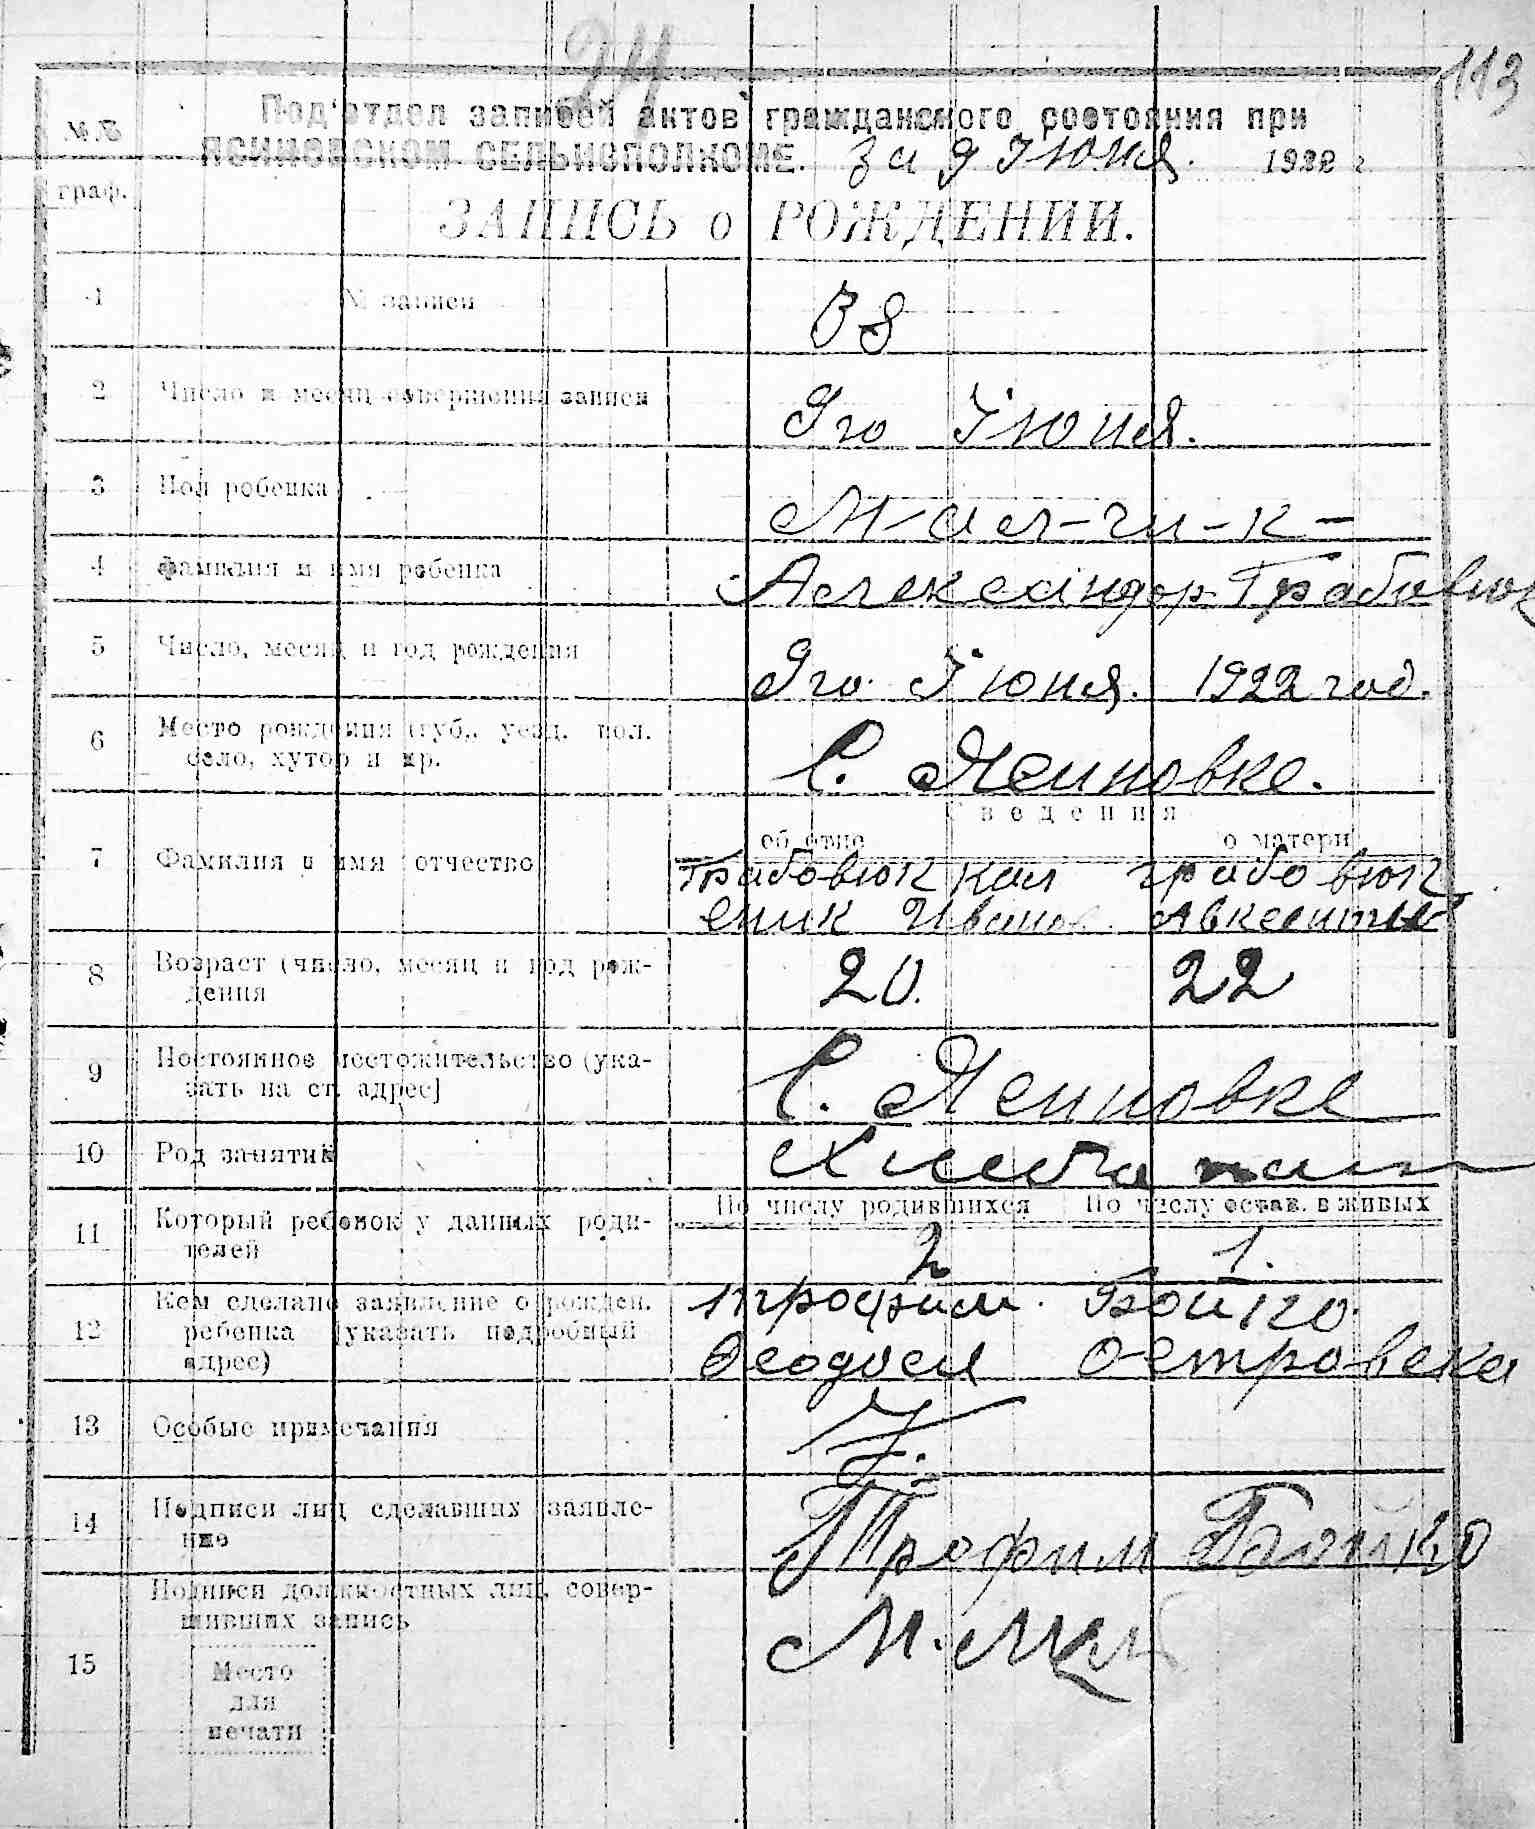 24
113
№№ граф.
Под'отдел записей актов гражданского состояния при
ЯСИНОВСКОМ СЕЛЬИСПОЛКОМЕ. За 9 Июня. 1922 г.
ЗАПИСЬ о РОЖДЕНИИ.
1 № записи 38
2 Число и месяц совершения записи 9го Июня.
3 Пол ребенка М-ал-чи-к-
4 Фамилия и имя ребенка Александр Грабовюк
5 Число, месяц и год рождения 9го Июня. 1922 год.
6 Место рождения (губ., уезд. вол.
село, хутор и пр. С. Ясиновке.
Сведения
об отце о матери
7 Фамилия и имя отчество Грабовюк Кал грабовюк
еник Иванов Авксенти
8 Возраст (число, месяц и год рож-
дения 20. 22
9 Постоянное местожительство (ука-
зать на ст. адрес) С. Ясиновке
10 Род занятий
По числу родившихся По числу остав. в живых
11 Который ребенок у данных роди-
телей 2 1.
12 Кем сделано заявление о рожден.
ребенка (указать подробный
адрес) Трофим. Бойко.
Феодосия Островска
13 Особые примечания
14 Подписи лиц сделавших заявле-
ние Трофим Бойко
15 Подписи должностных лиц, совер-
шивших запись
Место
для
печати